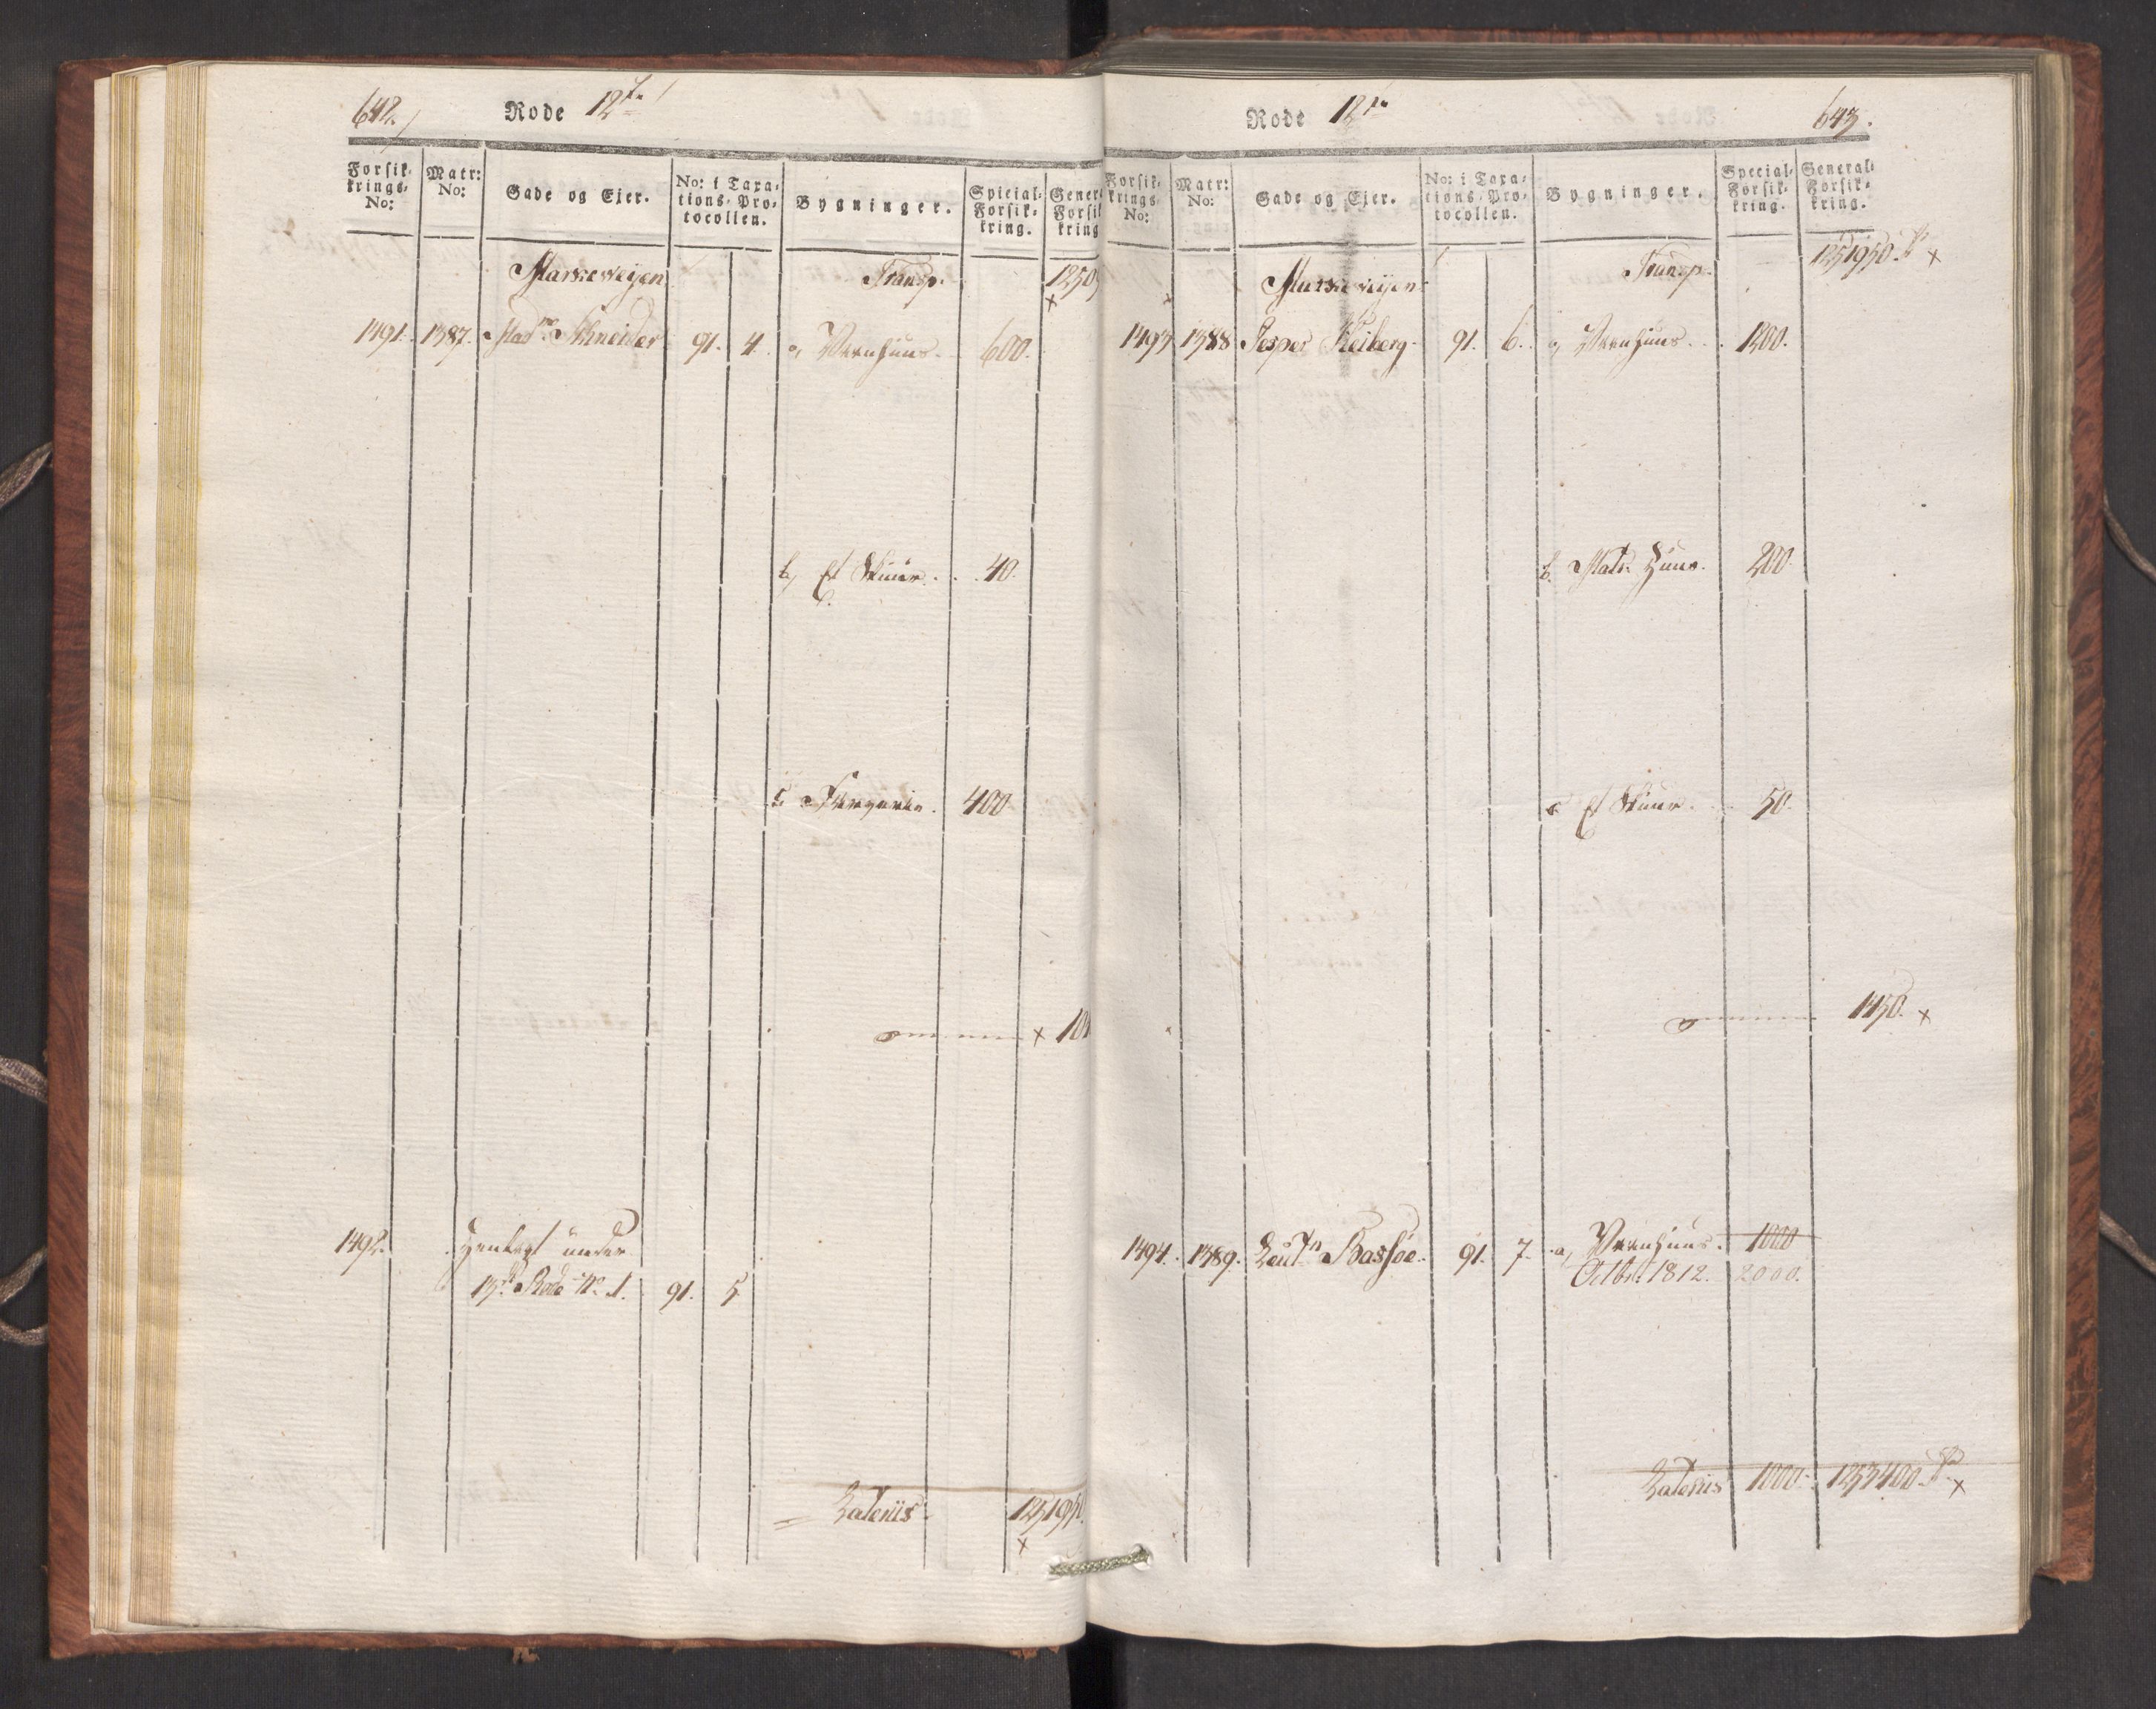 642.
Rode 12te
Forsikkrings- No:
Matr: No:
Gade og Eier.
No: i Taxations-Protocollen.
Bygninger.
Special-Forsikkring.
Gener Forsik kring
Markeveien Transp. 1250
1491. 1387. Mad. Schneider 91. 4. a, Vaanhuus. 600.
b, Et Skuur. 40.
c 400.
1492. Henlagt under
13de Rode No. 1. 91. 5
Lateris 125195
643.
Rode 12te
Forsikkrings No:
Matr: No:
Gade og Eier.
No: i Taxations-Protocollen.
Bygninger.
Special-Forsikkring.
General-Forsikkring.
Markeveien Transp. 1251950.
1493 1388 Jesper Heiberg 91. 6. a, Vaanhuus. 1200.
b. Matr. Huus. 200.
c Et Skuur. 50.
1450.
1494. 1389. Leutn Bassøe. 91. 7. a, Vaanhuus. 1000
Octbr. 1812. 2000.
Lateris 1000. 1253400.